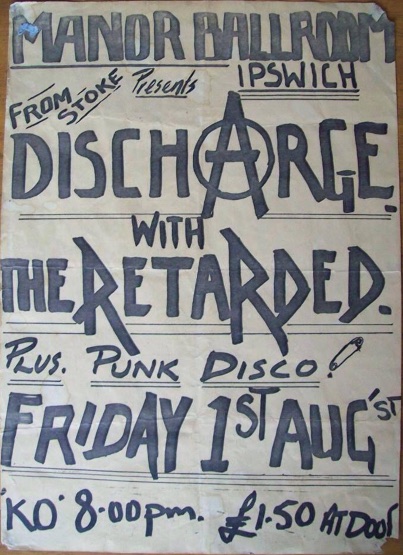 MANOR BALLROOM
Presents IPSWICH
FROM STOKE
DISCHARGE.
WITH
THE RETARDED.
PLUS. PUNK DISCO!
FRIDAY 1ST AUG'ST
'KO' 8.00pm. £1.50 AT DOOR